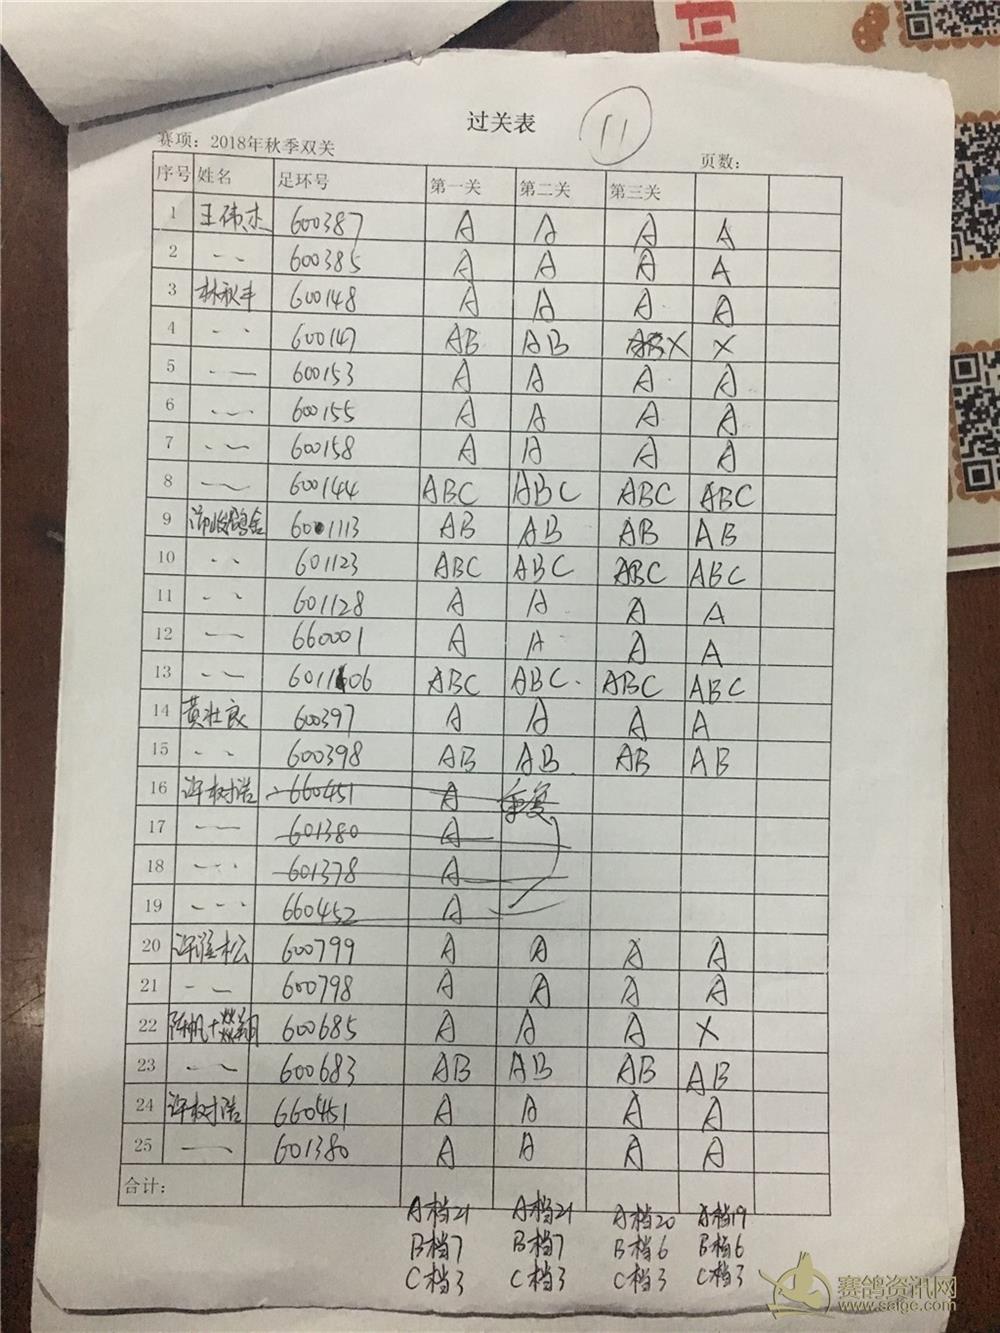 过关表
11
赛项：2018年秋季双关
页数：
序号 姓名 足环号 第一关 第二关 第三关
1 王伟杰 600387 A A A A
2 〃 600385 A A A A
3 林秋丰 600148 A A A A
4 〃 600147 AB AB ABX X
5 〃 600153 A A A A
6 〃 600155 A A A A
7 〃 600158 A A A A
8 〃 600144 ABC ABC ABC ABC
9 鸽舍 601113 AB AB AB AB
10 〃 601123 ABC ABC ABC ABC
11 〃 601128 A A A A
12 〃 660001 A A A A
13 〃 601106 ABC ABC ABC ABC
14 黄壮良 600397 A A A A
15 〃 600398 AB AB AB AB
16 许树浩 660451 A 重复
17 〃 601380 A
18 〃 601378 A
19 〃 660452 A
20 许松 600799 A A A A
21 〃 600798 A A A A
22 陈帆+燊翔 600685 A A A X
23 〃 600683 AB AB AB AB
24 许树浩 660451 A A A A
25 〃 601380 A A A A
合计：
A档21 A档21 A档20 A档19
B档7 B档7 B档6 B档6
C档3 C档3 C档3 C档3
赛鸽资讯网
www.saige.com